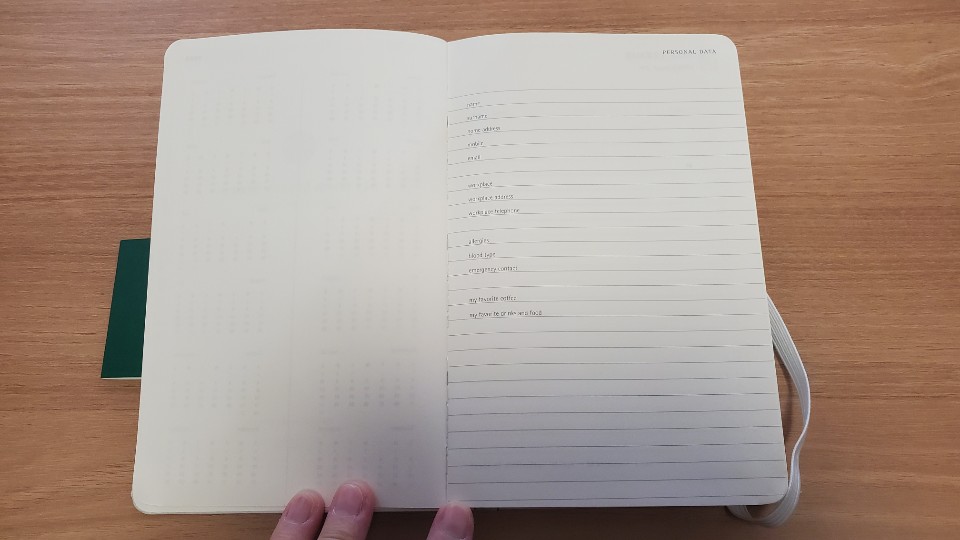 PERSONAL DATA
name
surname
home address
mobile
email
workplace
workplace address
workplace telephone
allergies
blood type
emergency contact
my favorite coffee
my favorite drinks and food